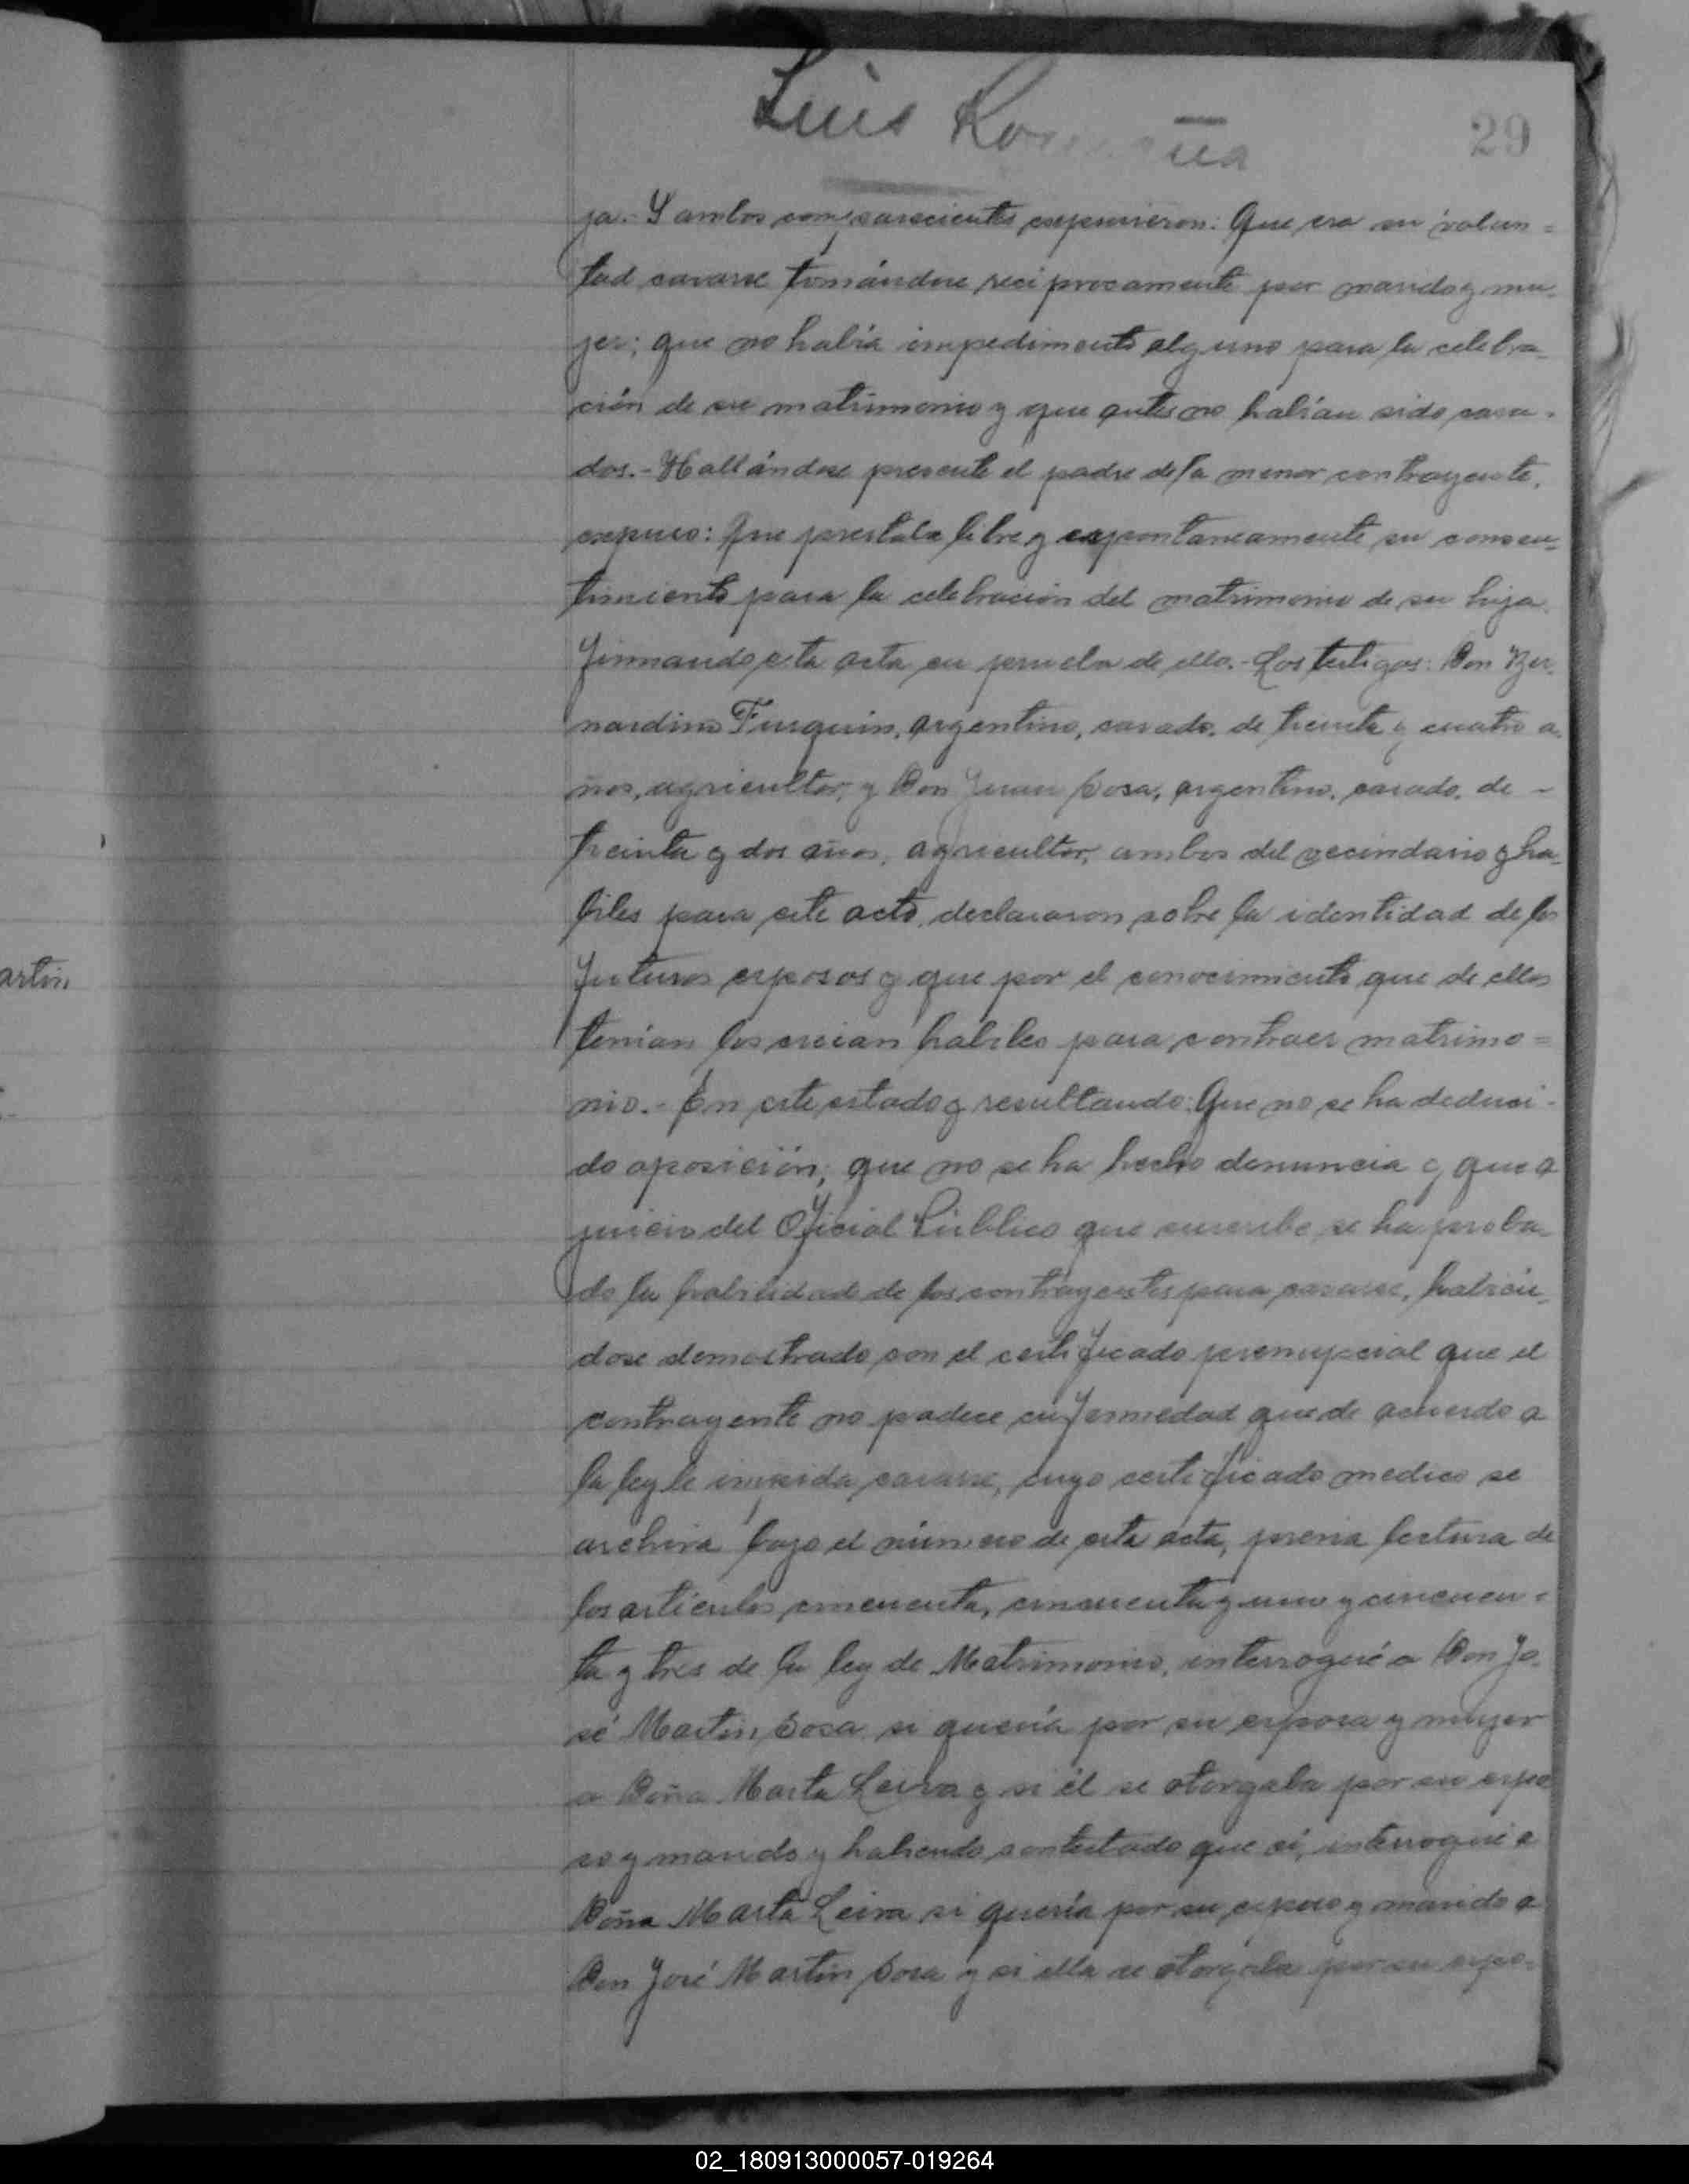 Luis
29
ja.- Y ambos comparecientes expusieron: Que era su volun=
tad casarse tomándose reciprocamente por marido y mu-
jer; que no había impedimento alguno para la celebra-
ción de su matrimonio y que antes no habían sido casa-
dos.- Hallándose presente el padre de la menor contrayente,
expuso: Que prestaba libre y espontaneamente su consen-
timiento para la celebracion del matrimonio de su hija
firmando esta acta en prueba de ello.- Los testigos: Don Ber-
nardino Furquin, argentino, casado, de treinta y cuatro a-
ños, agricultor, y Don Juan Sosa, argentino, casado, de -
treinta y dos años, agricultor, ambos del vecindario y ha-
biles para este acto, declararon sobre la identidad de los
futuros esposos y que por el conocimiento que de ellos
tenían los creian habiles para contraer matrimo=
nio.- En este estado y resultando: Que no se ha deduci-
do oposición; que no se ha hecho denuncia y que a
juicio del Oficial Público que suscribe, se ha proba-
do la habilidad de los contrayentes para casarse, habién-
dose demostrado con el certificado prenupcial que el
contrayente no padece enfermedad que de acuerdo a
la ley le impida casarse, cuyo certificado medico se
archiva bajo el número de esta acta, previa lectura de
los artículos cincuenta, cincuenta y uno y cincuen-
ta y tres de la ley de Matrimonio, interrogué a Don Jo-
sé Martin Sosa si quería por su esposa y mujer
a Doña Marta Leiva y si él se otorgaba por su espo
so y marido y habiendo contestado que sí, interrogué a
Doña Marta Leiva si quería por su esposo y marido a
Don José Martin Sosa y si ella se otorgaba por su espo-
artin
02_180913000057-019264